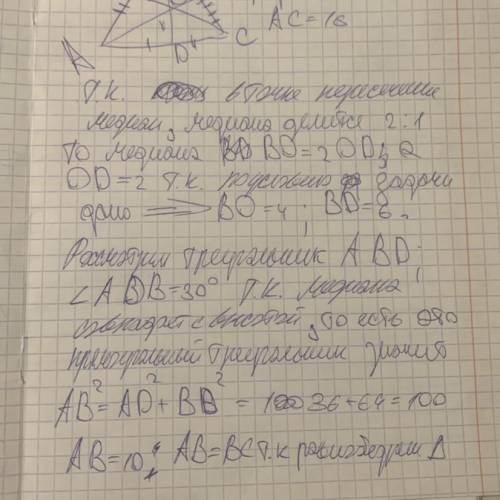 AC=16
A D C
Т.К. в точке пересечения
медиан, медиана делится 2:1
то медиана BO=2OD, а
OD=2 т.к. по условию задачи
дано => BO=4; BD=6.
Рассмотрим треугольник ABD;
∠ADB=30° т.к. медиана
совпадает с высотой, то есть это
прямоугольный треугольник значит
AB²=AD²+BD²=36+64=100
AB=10; AB=BC т.к равнобедрен Δ